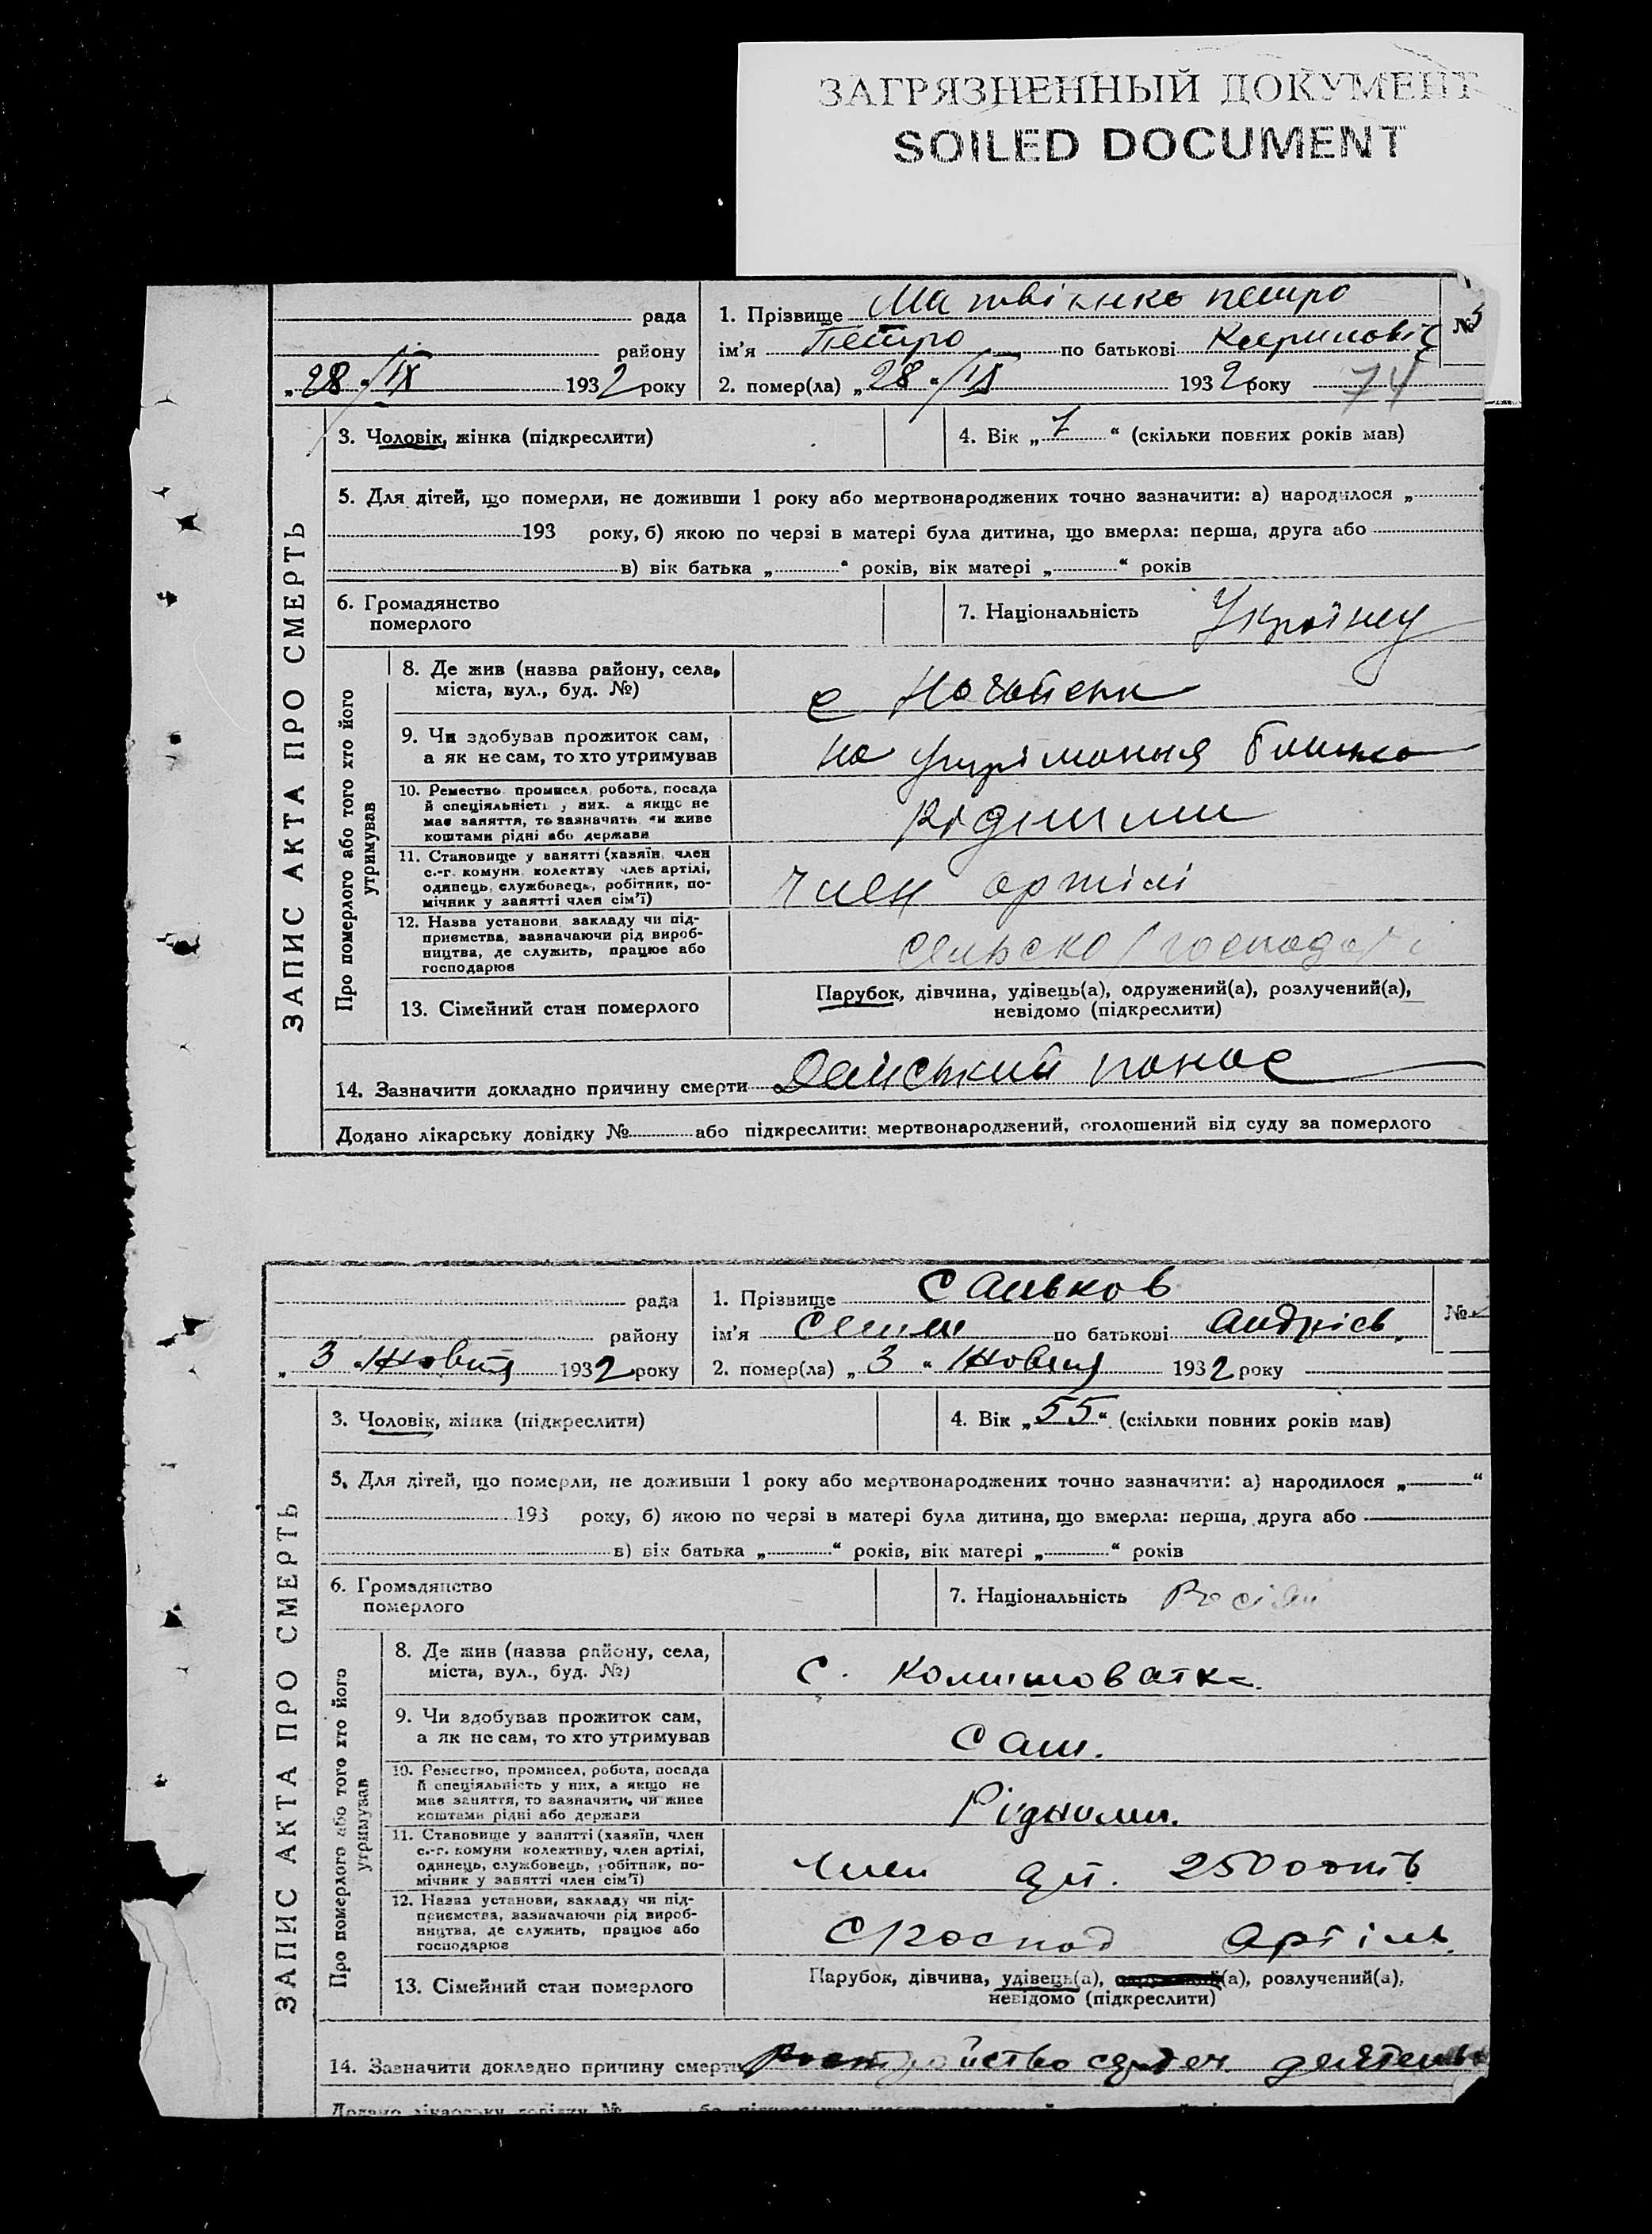 ЗАГРЯЗНЕННЫЙ ДОКУМЕНТ
SOILED DOCUMENT
ЗАПИС АКТА ПРО СМЕРТЬ
рада
району
„28“/IX 1932 року
1. Прізвище Матвієнко петро
№
ім'я Петро по батькові
2. помер(ла) „28“/IX 1932 року 74
3. Чоловік, жінка (підкреслити)
4. Вік „7“ (скільки повних років мав)
5. Для дітей, що померли, не доживши 1 року або мертвонароджених точно зазначити: а) народилося „
193 року, б) якою по черзі в матері була дитина, що вмерла: перша, друга або
в) вік батька „ “ років, вік матері „ “ років
6. Громадянство
померлого
7. Національність
Про померлого або того хто його
утримував
8. Де жив (назва району, села,
міста, вул., буд. №)
с
9. Чи здобував прожиток сам,
а як не сам, то хто утримував
на
10. Ремество, промисел, робота, посада
й спеціяльність у них, а якщо не
має заняття, то зазначить, чи живе
коштами рідні або держави
Рідними
11. Становище у занятті (хазяїн, член
с.-г. комуни, колектву член артілі,
одинець, службовець, робітник, по-
мічник у занятті член сім'ї)
член артілі
12. Назва установи, закладу чи під-
приємства, зазначаючи рід вироб-
ництва, де служить, працює або
господарює
13. Сімейний стан померлого
Парубок, дівчина, удівець(а), одружений(а), розлучений(а),
невідомо (підкреслити)
14. Зазначити докладно причину смерти понос
Додано лікарську довідку № або підкреслити: мертвонароджений, оголошений від суду за померлого
ЗАПИС АКТА ПРО СМЕРТЬ
рада
району
„3“ Жовтня 1932 року
1. Прізвище Сальков
№
ім'я Семен по батькові Андрієв.
2. помер(ла) „3“ Жовтня 1932 року
3. Чоловік, жінка (підкреслити)
4. Вік „55“ (скільки повних років мав)
5. Для дітей, що померли, не доживши 1 року або мертвонароджених точно зазначити: а) народилося „ “
193 року, б) якою по черзі в матері була дитина, що вмерла: перша, друга або
в) вік батька „ “ років, вік матері „ “ років
6. Громадянство
померлого
7. Національність
Про померлого або того хто його
утримував
8. Де жив (назва району, села,
міста, вул., буд. №)
С.
9. Чи здобував прожиток сам,
а як не сам, то хто утримував
Сам.
10. Ремество, промисел, робота, посада
й спеціяльність у них, а якщо не
має заняття, то зазначити, чи живе
коштами рідні або держави
Рідними.
11. Становище у занятті (хазяїн, член
с.-г. комуни колективу, член артілі,
одинець, службовець, робітник, по-
мічник у занятті член сім'ї)
член
12. Назва установи, закладу чи під-
приємства, зазначаючи рід вироб-
ництва, де служить, працює або
господарює
Артіль
13. Сімейний стан померлого
Парубок, дівчина, удівець(а), (а), розлучений(а),
невідомо (підкреслити)
14. Зазначити докладно причину смерти
Додано лікарську довідку №